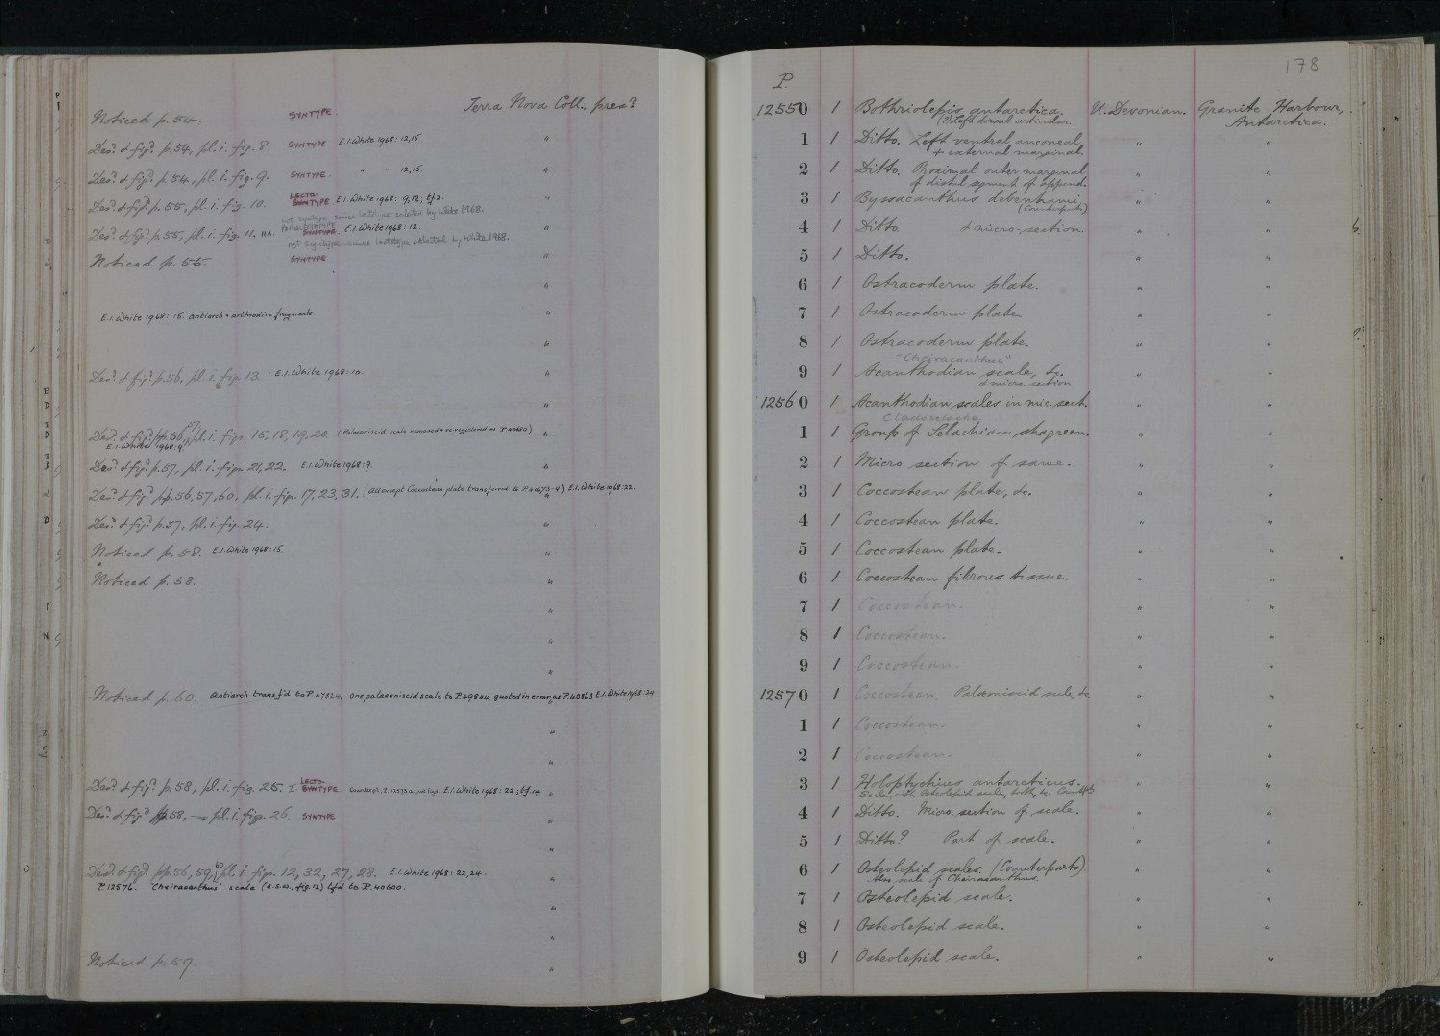 Terra Nova Coll., pres?
Noticed p. 54. SYNTYPE
Des? & fig? p. 54, pl. i. fig. 8. SYNTYPE E.I. White 1968: 12, 15 "
Des? & fig? p. 54, pl. i. fig. 9. SYNTYPE " " 12, 15. "
Des? & fig? p. 55, pl. i. fig. 10. LECTO- SYNTYPE E.I. White 1968: 9, 12; tf 2. "
not syntype since lectotype selected by White 1968.
Des? & fig? p. 55, pl. i. fig. 11, SYNTYPE. E.I. White 1968: 12. "
not syntype since lectotype selected by White 1968.
Noticed p. 55. SYNTYPE
"
E.I. White 1968: 15. Antiarch & arthrodire fragments. "
"
Des? & fig? p. 56, pl. i. fig. 13. E.I. White 1968: 10. "
"
Des? & fig? pp. 56, pl. i. figs. 15, 18, 19, 20. "
E.I. White 1968: 9.
Des? & fig? p. 57, pl. i. figs. 21, 22. E.I. White 1968: 9. "
Des? & fig? pp. 56, 57, 60, pl. i. figs. 17, 23, 31. (All except Coccostean plate transferred to P. E.I. White 1968: 22. "
Des? & fig? p. 57, pl. i. fig. 24. "
Noticed p. 58. E.I. White 1968: 15. "
Noticed p. 58. "
"
"
"
Noticed p. 60. Antiarch transf'd to P. 27524, one palaeoniscid scale to quoted in error as P. 40863 E.I. White 1968: 24
"
"
Des? & fig? p. 58, pl. i. fig. 25. LECTO- SYNTYPE E.I. White 1968: 22; tf. 14 "
Des? & fig? p. 58, pl. i. fig. 26. SYNTYPE "
"
Des? & fig? pp. 56, 59, pl. i. figs. 12, 32, 27, 28. E.I. White 1968: 22, 24. "
P. 12576. 'Cheiracanthus' scale (A.S.W. fig. 12) tf'd to P. 40600.
"
"
Noticed p. 59. "
178
P.
12550 1 Bothriolepis antarctica. U. Devonian. Granite Harbour,
Antarctica.
1 1 Ditto. Left ventral anconeal " "
+ external marginal.
2 1 Ditto. Proximal outer marginal " "
of distal segment of append.
3 1 Byssacanthus debenhami, " "
(Counterparts)
4 1 Ditto & micro-section. " "
5 1 Ditto. " "
6 1 Ostracoderm plate. " "
7 1 Ostracoderm plate " "
8 1 Ostracoderm plate. " "
"Cheiracanthus"
9 1 Acanthodian scale, &c. " "
& micro. section
12560 1 Acanthodian scales in mic. sect. " "
1 1 Group of Selachian shagreen. " "
2 1 Micro section of same. " "
3 1 Coccostean plate, &c. " "
4 1 Coccostean plate. " "
5 1 Coccostean plate. " "
6 1 Coccostean fibrous tissue. " "
7 1 Coccostean. " "
8 1 Coccostean. " "
9 1 Coccostean. " "
12570 1 Coccostean. Palaeoniscid scale, &c " "
1 1 Coccostean. " "
2 1 Coccostean. " "
3 1 Holoptychius antarcticus. " "
4 1 Ditto. Micro section of scale. " "
5 1 Ditto? Part of scale. " "
6 1 Osteolepid scales. (Counterparts) " "
Also scale of Cheiracanthus.
7 1 Osteolepid scale. " "
8 1 Osteolepid scale. " "
9 1 Osteolepid scale. " "